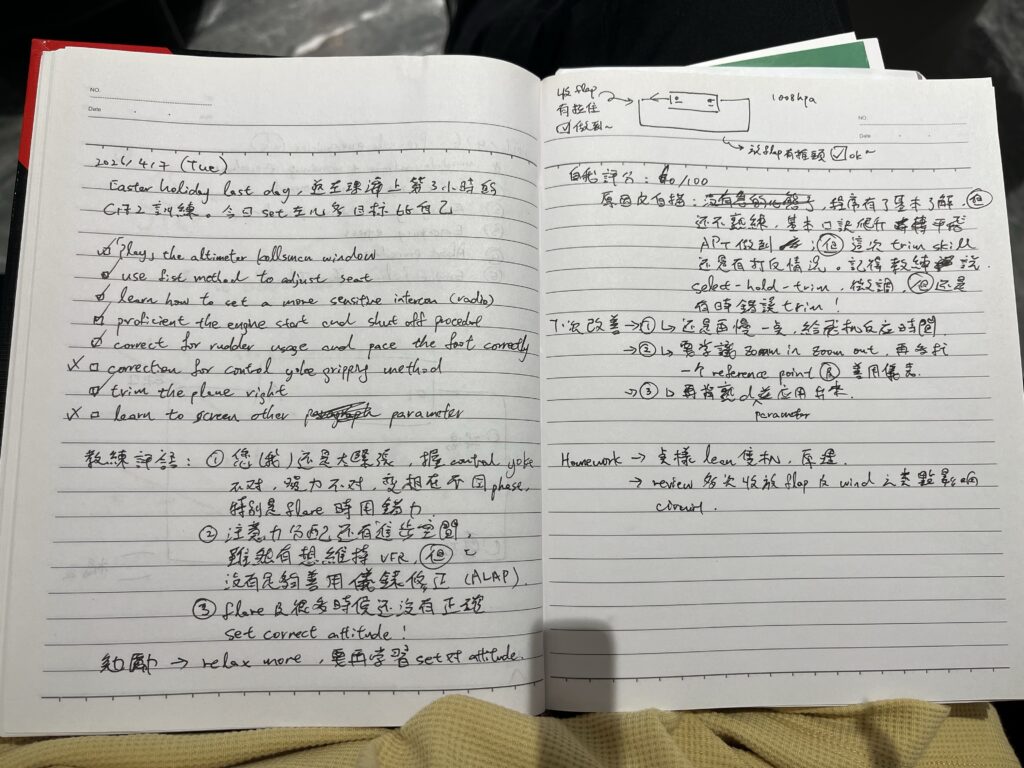 NO.
Date
2026/4/7 (Tue)
Easter holiday last day, 並至珠海上第3小時的
C172 訓練。今日set左心多目標比自己
the altimeter kollsman window
use fist method to adjust seat
learn how to set a more sensitive intercom (radio)
proficient the engine start and shut off procedure
correct for rudder usage and pace the foot correctly
X correction for control yoke gripping method
trim the plane right
X learn to screen other parameter
教練評語: ① 您(我)还是大緊張, 握control yoke
不对, 發力不对, 变相在不同phase,
特别是flare 時用錯力.
② 注意力分配还有進步空間,
雖然有想維持 VFR, 但
沒有足夠善用儀錶修正 (ALAP).
③ flare 及很多時候还沒有正確
set correct attitude!
勉勵 → relax more, 要再学習set对 attitude.
收 flap
有拉住
做到~
1008hpa
NO.
Date
放flap有推頭 ok~
自我評分: 60/100
原因及自描: 程序有了基本了解, 但
还不熟練, 基本口訣爬升 轉平飛
APT 做到; 但 這次 trim skill
还是有打反情況。記得教練說
select-hold-trim, 微調, 但还是
有時錯誤trim!
下次改善→① ↳ 还是再慢一点, 給飛机反应時間
→② ↳ 要学識 zoom in zoom out, 再多找
一个 reference point 及 善用儀表.
→③ ↳ 再
parameter
Homework → 点樣 lean 隻机, 原理.
→ review 多次收放 flap 及 wind 之类點影响
circuit.